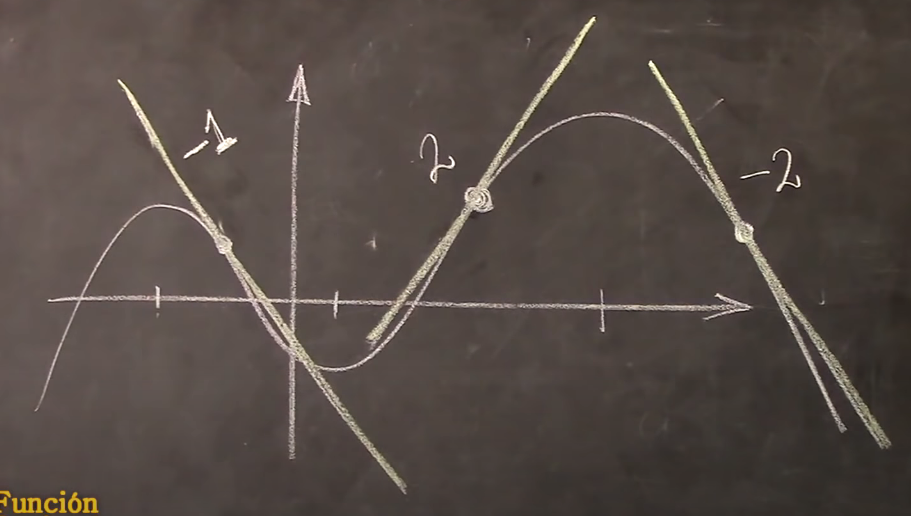 -1
2
-2
Función